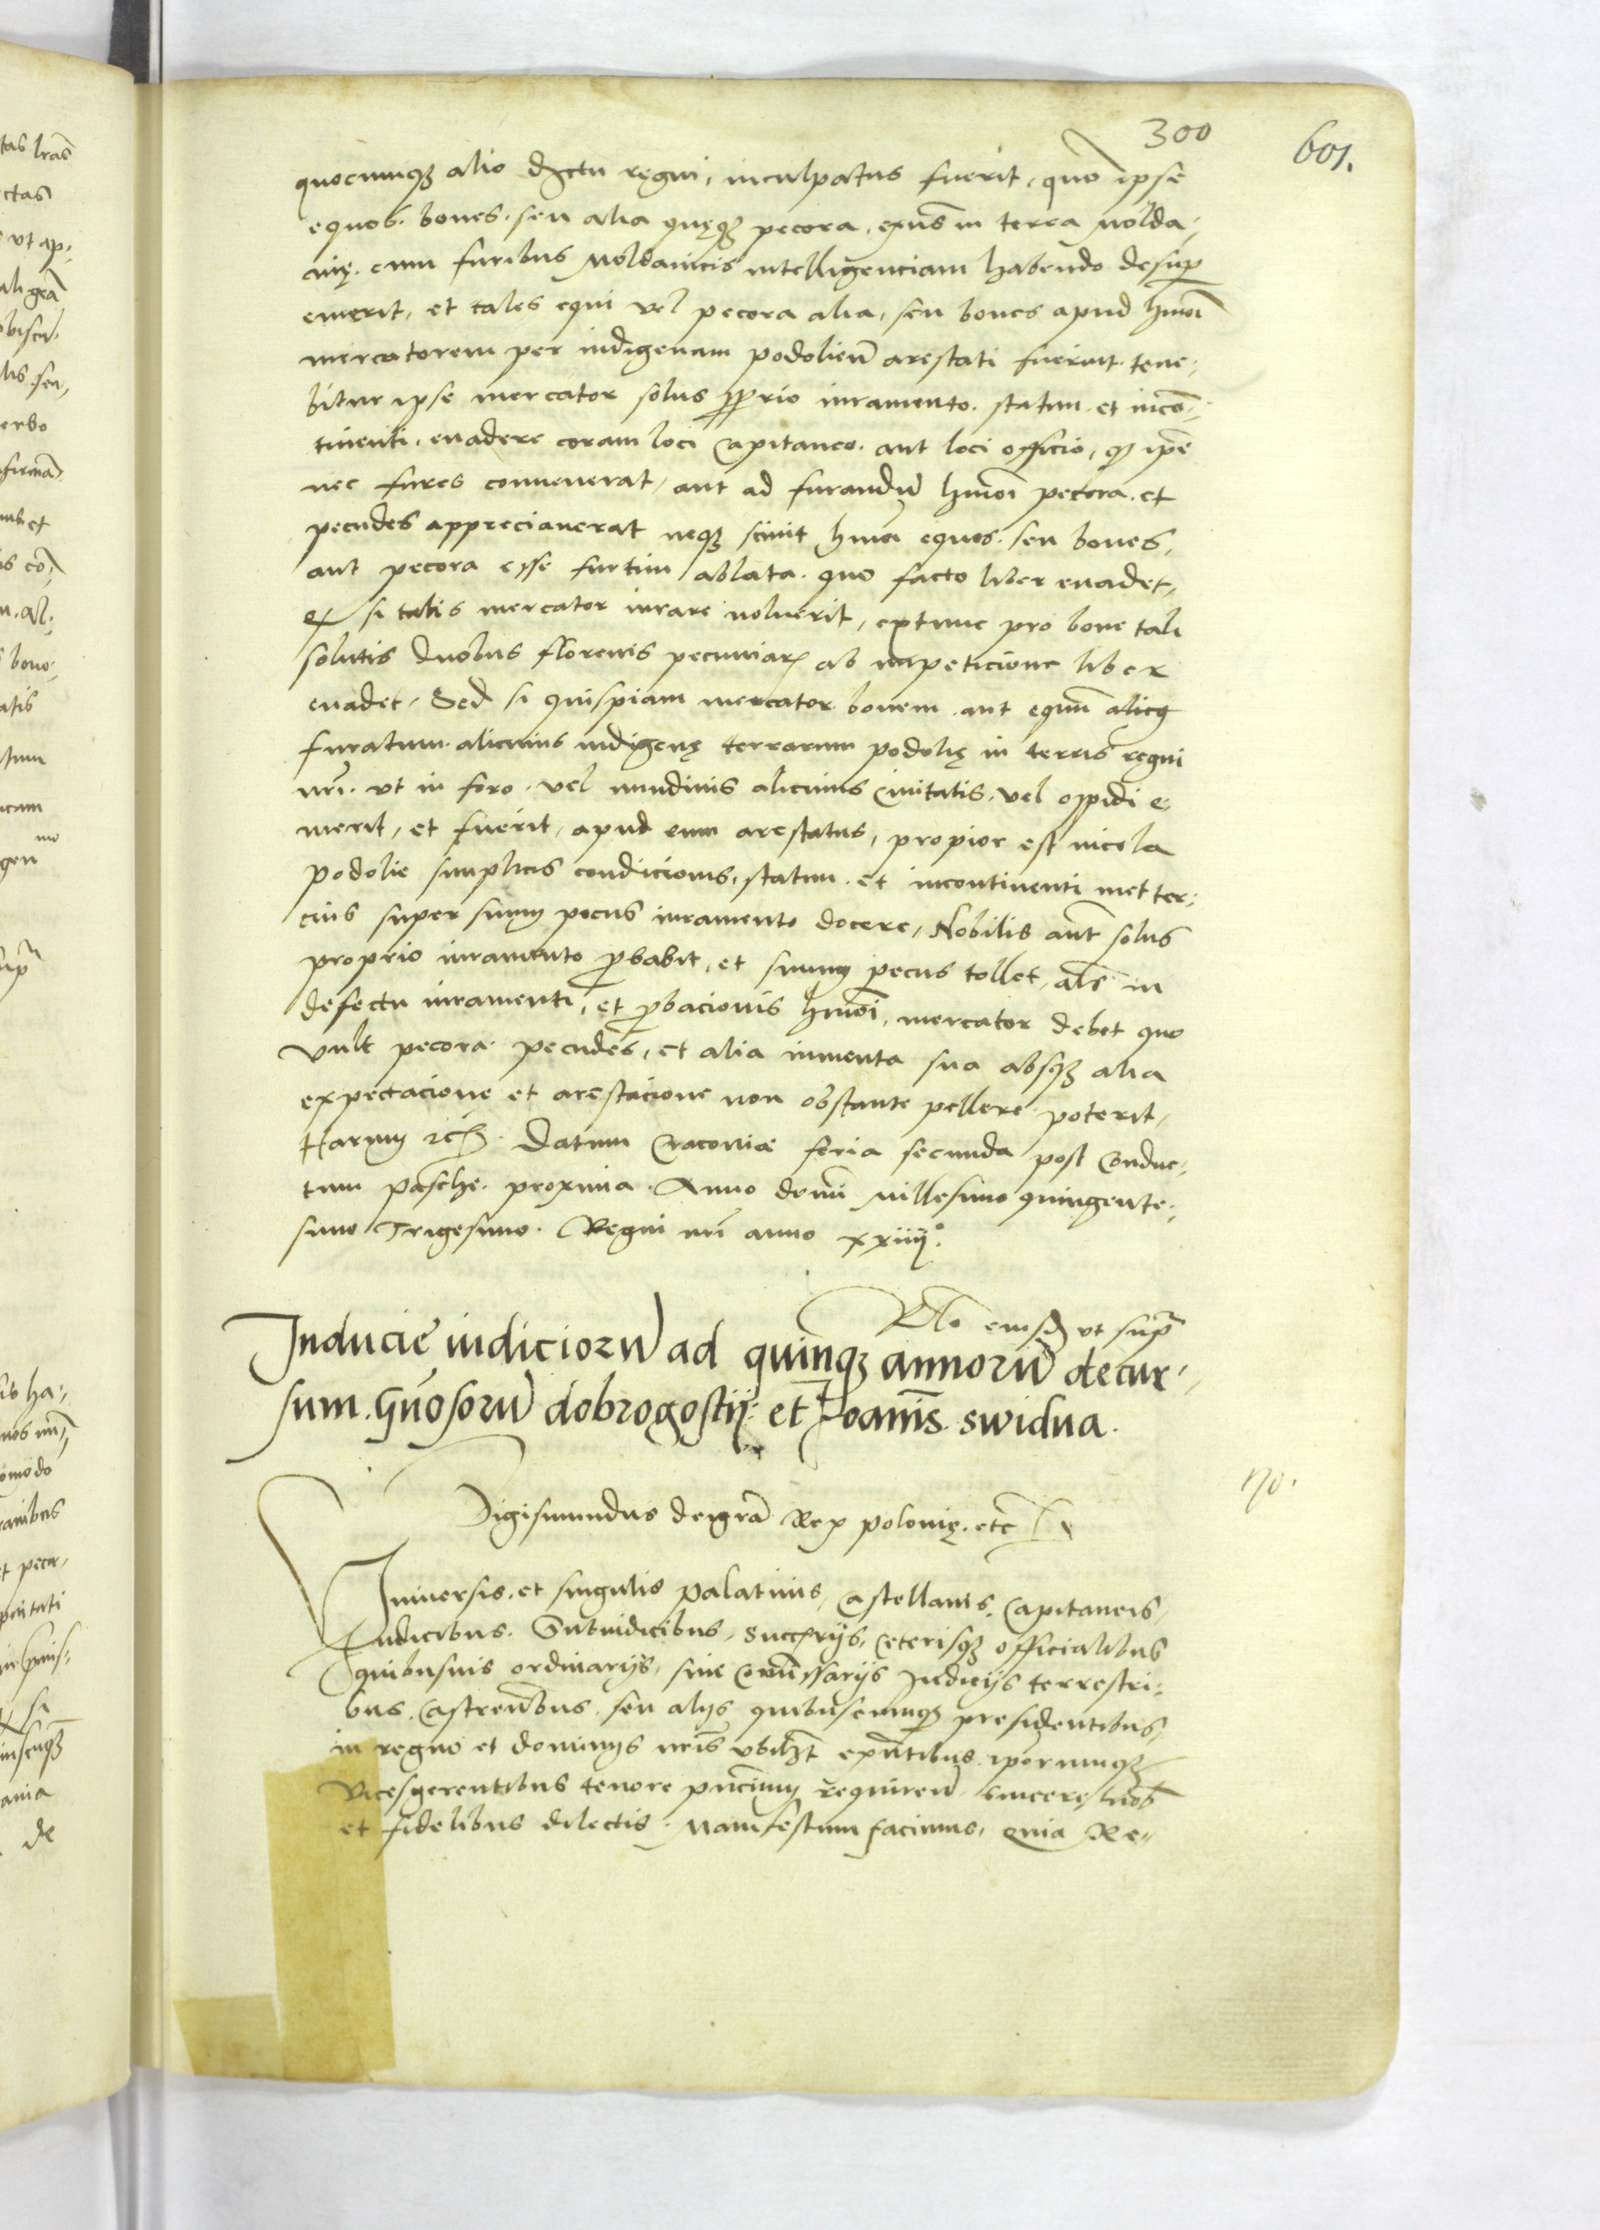 300
601.
quocumq3 alio dictu regni, inculpatus fuerit, quo ipse
equos. boves. seu alia quęq3 pecora, exns in terra Molda-
vię. cum furibus Moldavicis intelligenciam habendo desup
emerit, et tales equi vel pecora alia, seu boves apud hmoi
mercatorem per indigenam podolien arestati fuerint. tene-
bitur ipse mercator solus proprio iuramento. statim. et incō-
tinenti. evadere coram loci Capitaneo. aut loci officio, q ipe
nec fures convenerat, aut ad furandū hmoi pecora. et
pecudes appreciaverat neq3 scivit hmoi equos. seu boves,
aut pecora esse furtim ablata. quo facto liber evadet,
si talis mercator iurare noluerit, extunc pro bove tali
solutis duobus florenis pecuniar ab impeticione liber
evadet. Sed si quispiam mercator bovem aut equū aliq
furatum alicuius indigenę terrarum podolię in terris regni
nri. ut in foro. vel nundinis alicuius Civitatis. vel oppidi e-
merit, et fuerit, apud eum arestatus, propior est incola
podolie simplicis condicionis, statim. et incontinenti met ter-
cius super suum pecus iuramento docere, Nobilis aut solus
proprio iuramento probabit, et suum pecus tollet, als in
defectu iuramenti, et probacionis hmoi, mercator debet quo
vult pecora. pecudes, et alia iumenta sua absq3 alia
expectacione et arestacione non obstante pellere poterit,
Harum Datum Cracoviæ feria secunda post Conduc-
tum pasche. proxima. Anno domi Millesimo quingente-
simo Trigesimo. Regni nri anno xxiiij°.
Rlo eiusd ut supra
Inducie iudiciorū ad quinq3 annorū decur-
sum. Gnosorū dobrogostij et Joannis. swidua.
Sigismundus dei gra Rex polonię. etc
no.
Universis. et singulis palatinis, Castellanis, Capitaneis,
Iudicibus. Subiudicibus, Succīijs, Ceterisq3 officialibus
quibusuis ordinarijs, sive Comissarijs Iudicijs terrestri-
bus. Castrensibus. seu alijs quibuscumq3 presidentibus,
in regno et dominijs nris ubilzt exntibus. iporumq3
Vicesgerentibus tenore pncium requiren sincere nob
et fidelibus dilectis. Manifestum facimus, quia Re-